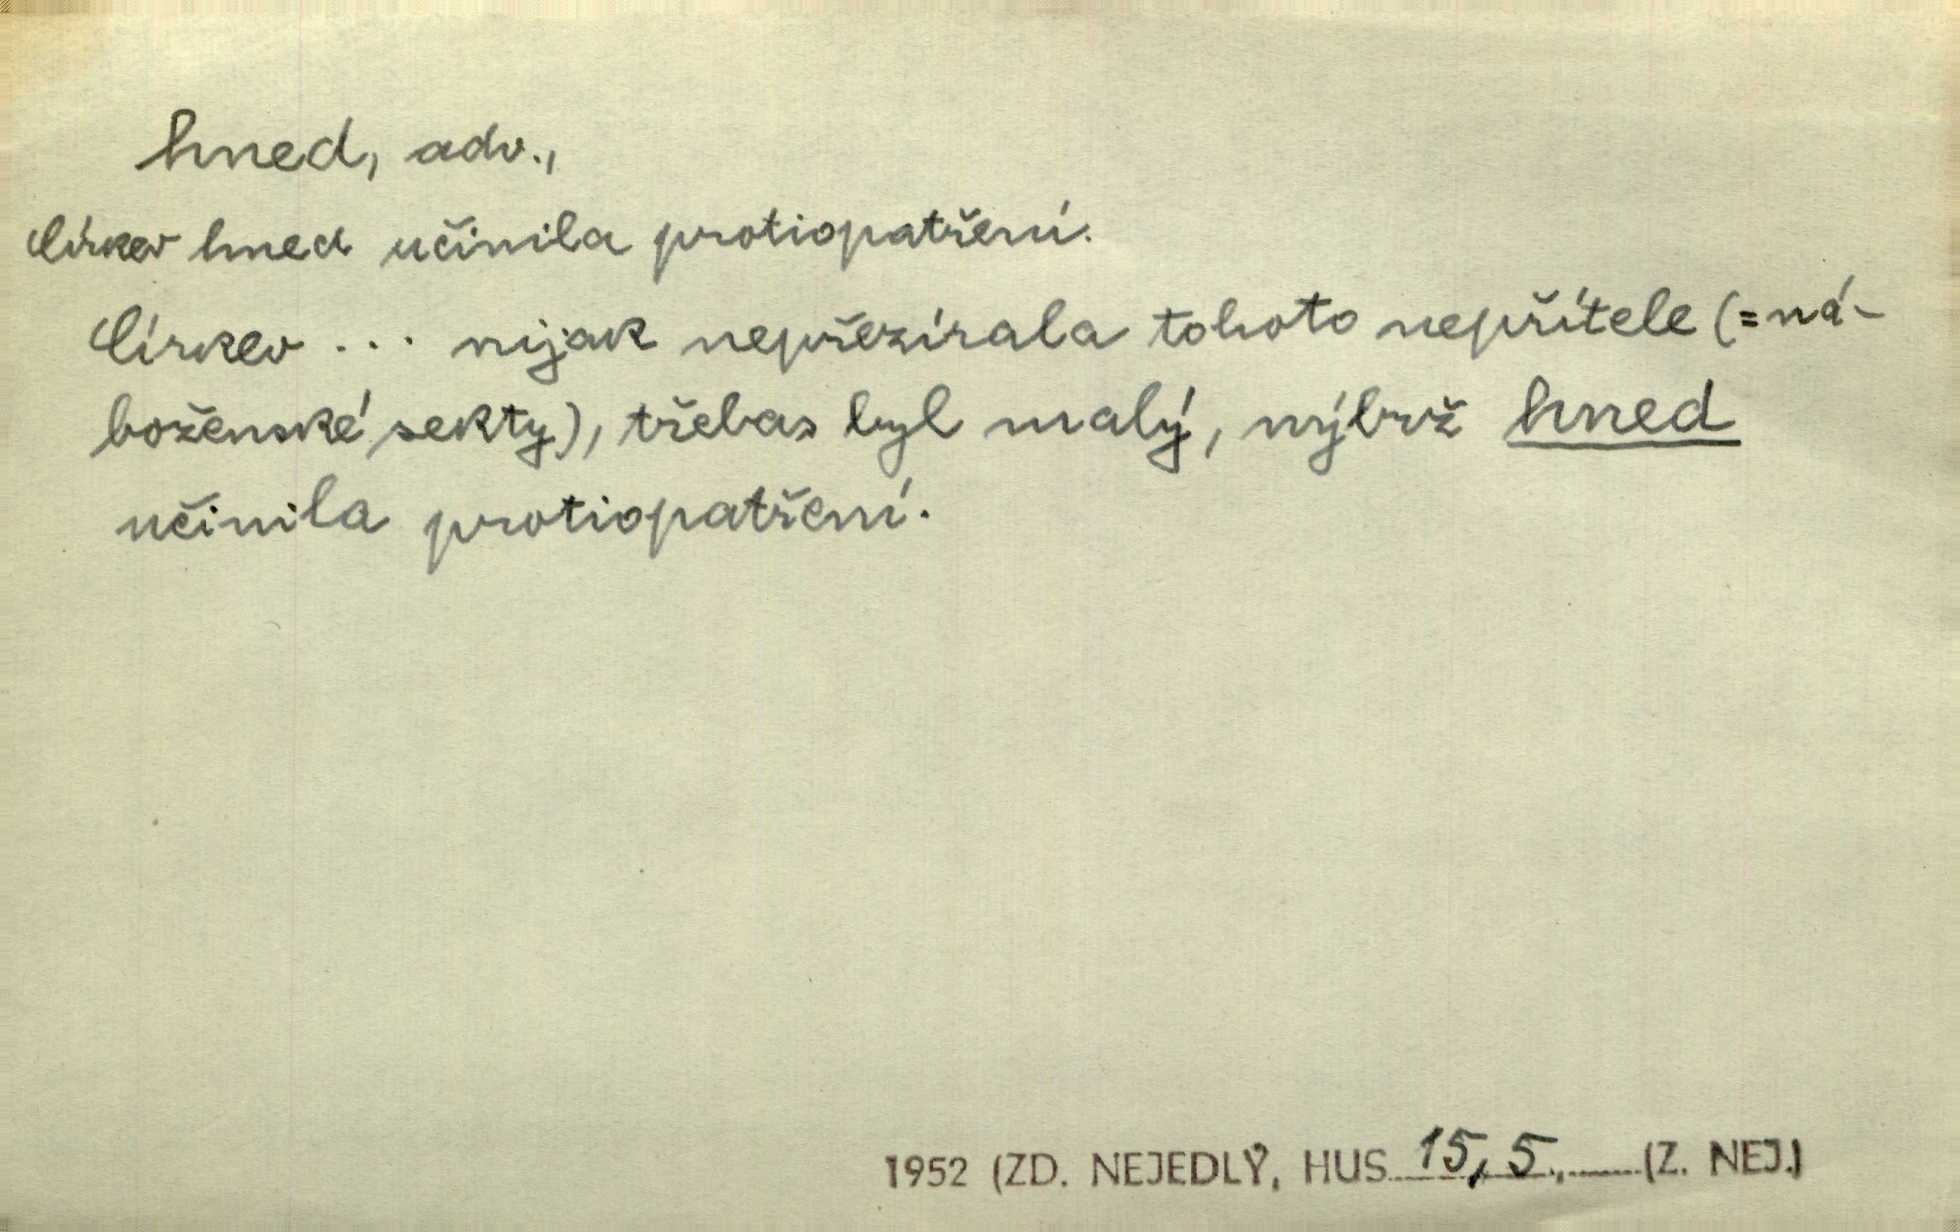 hned, adv.,
Církev hned učinila protiopatření.
Církev ... nijak nepřezírala tohoto nepřítele (= ná-
boženské sekty), třebas byl malý, nýbrž hned
učinila protiopatření.
1952 (ZD. NEJEDLÝ, HUS 15, 5., (Z. NEJ.)